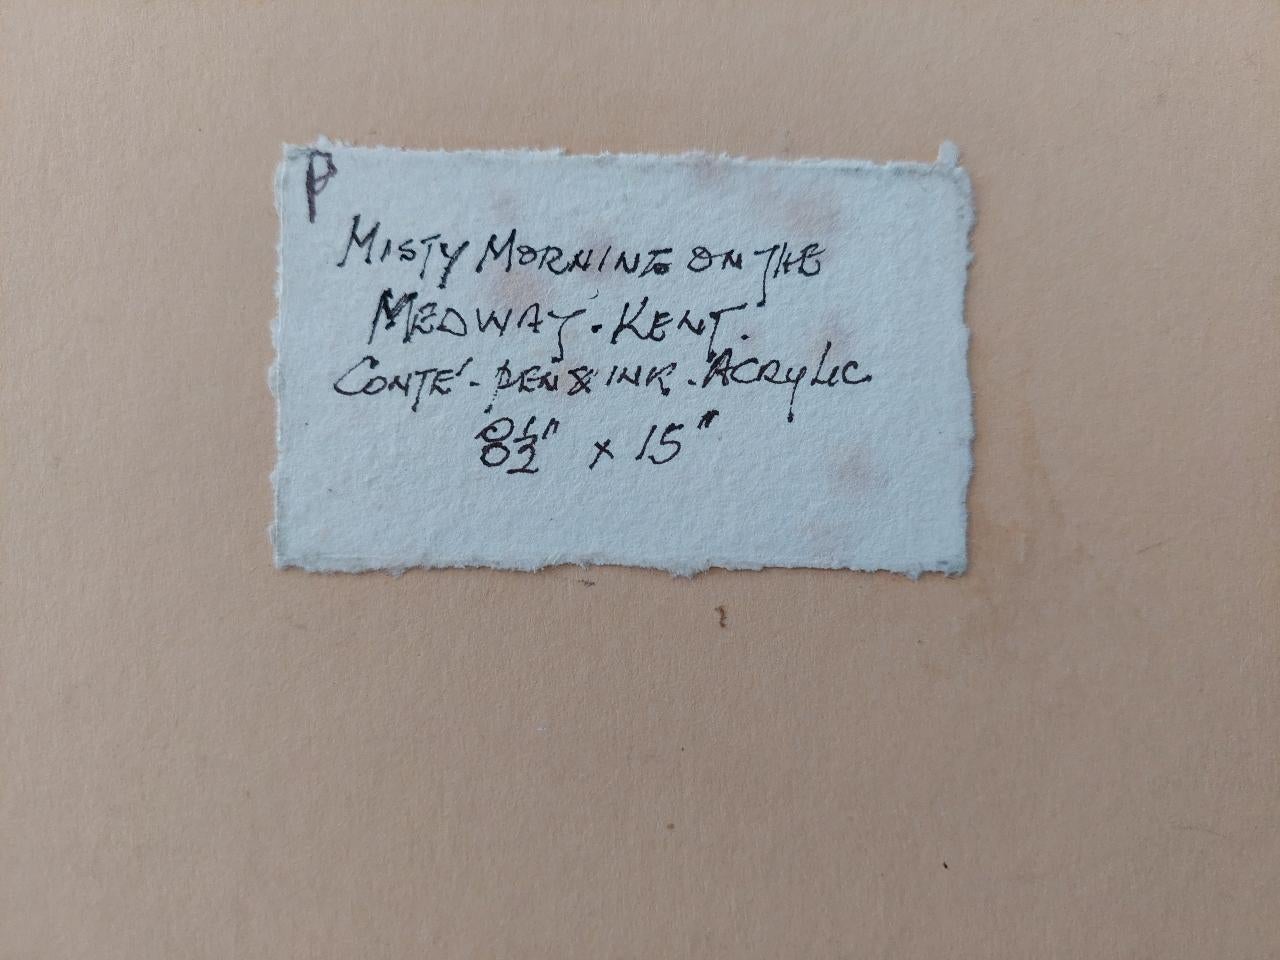 P
MISTY MORNING ON THE
MEDWAY. KENT.
CONTÉ - PEN & INK. ACRYLIC
8½" x 15"